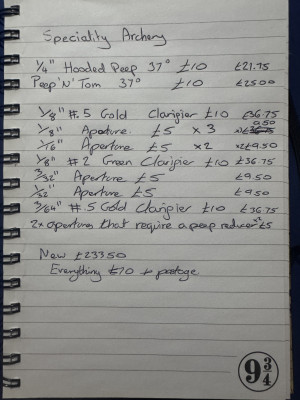 Speciality Archery
1/4" Hooded Peep 37° £10 £21.75
Peep 'N' Tom 37° £10 £25.00
1/8" #.5 Gold Clarifier £10 £36.75
1/8" Aperture £5 × 3 9.50
1/16" Aperture £5 × 2 x2 £9.50
1/8" #2 Green Clarifier £10 £36.75
3/32" Aperture £5 £9.50
1/32" Aperture £5 £9.50
3/64" #.5 Gold Clarifier £10 £36.75
2x apertures that require a peep reducer £5
New £233.50
Everything £70 + postage
9 3/4